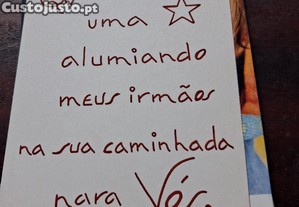 CustoJusto.pt
uma
alumiando
meus irmãos
na sua caminhada
para Vós.